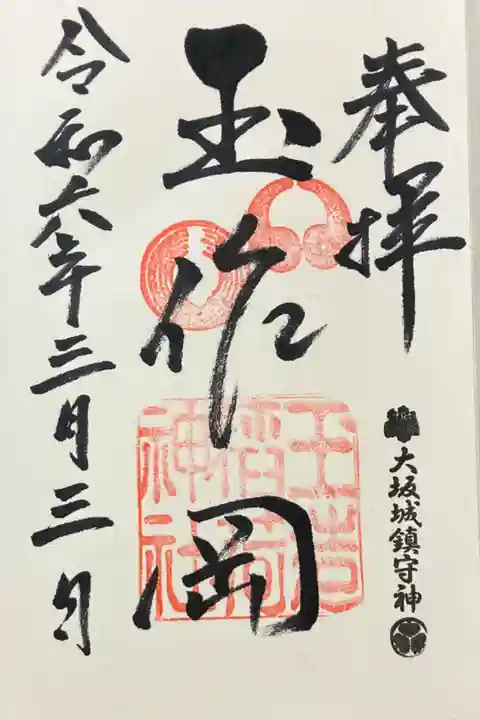 奉拝
大坂城鎮守神
玉作岡
玉造
稲荷
神社
令和六年三月三日